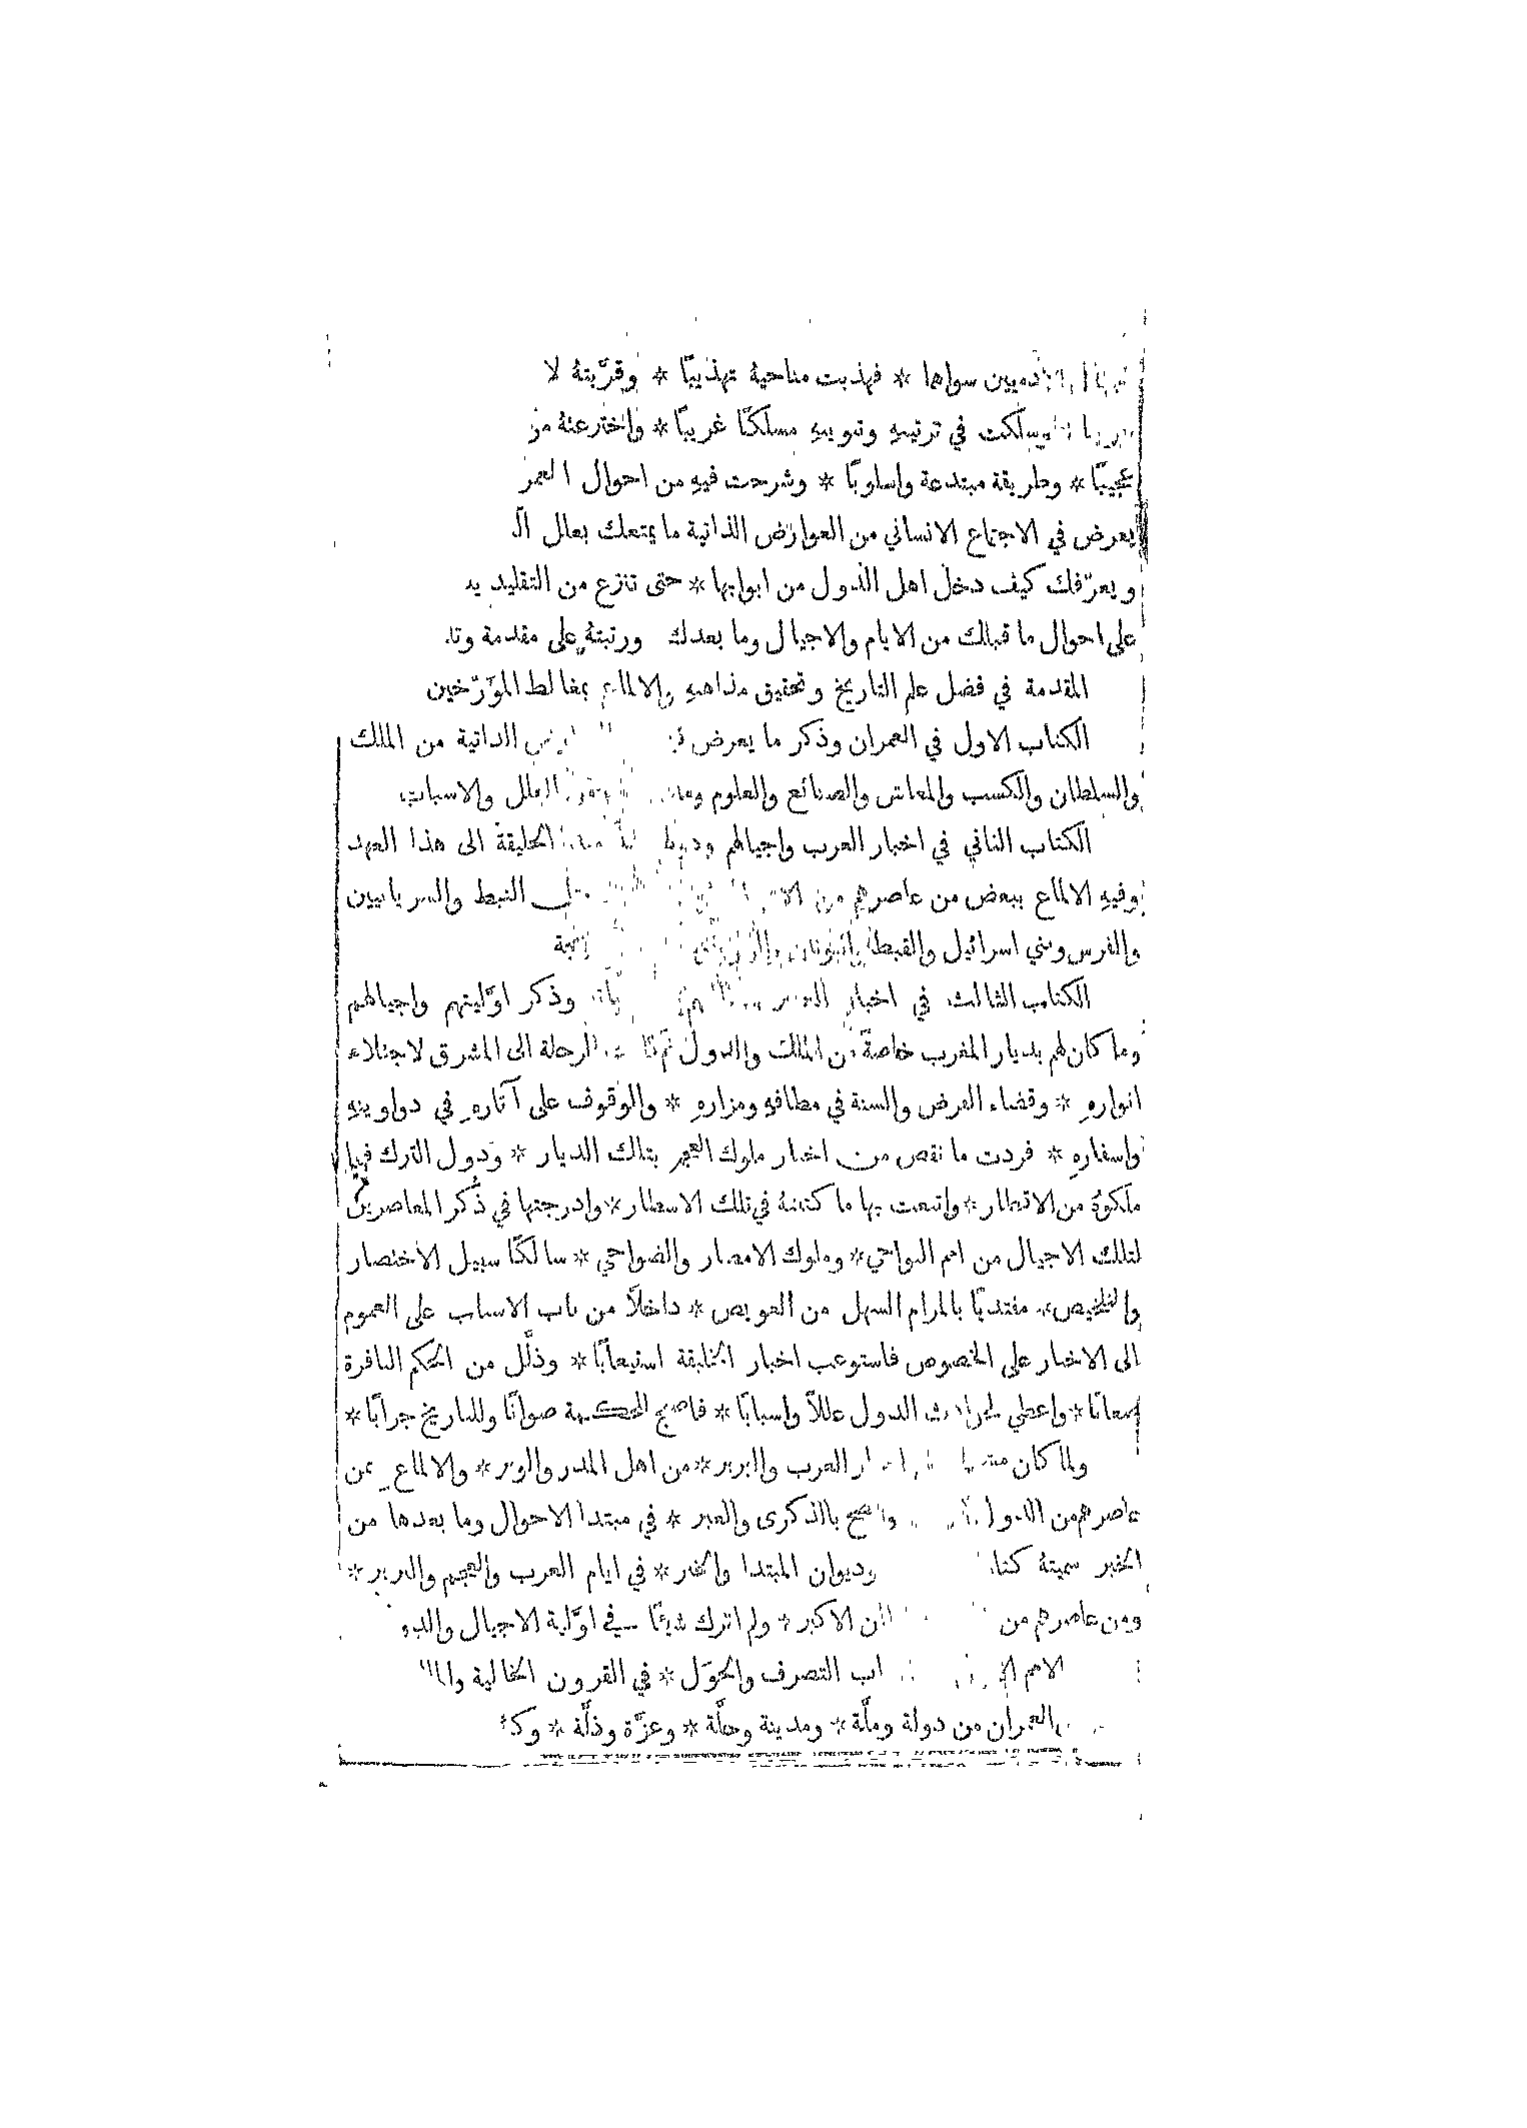 سواها * فهذبت مناحيهُ تهذيبًا * وقرّبتهُ لا
وسلكت في ترتيبهِ وتبويبهِ مسلكًا غريبًا * واخترعتهُ من
عجيبًا * وطريقة مبتدعة واسلوبًا * وشرحت فيهِ من احوال العمر
يعرض في الاجتماع الانساني من العوارض الذاتية ما يمتعك بعلل ال
ويعرّفك كيف دخل اهل الدول من ابوابها * حتى تنزع من التقليد يد
على احوال ما قبلك من الايام والاجيال وما بعدك ورتبتهُ على مقدمة وثل
المقدمة في فضل علم التاريخ وتحقيق مذاهبهِ والالماع بمغالط المؤرّخين
الكتاب الاول في العمران وذكر ما يعرض الذاتية من الملك
والسلطان والكسب والمعاش والصنائع والعلوم العلل والاسباب
الكتاب الثاني في اخبار العرب واجيالهم الخليقة الى هذا العهد
وفيهِ الالماع ببعض من عاصرهم من النبط والسريانيين
والفرس وبني اسرائيل والقبط واليونان
الكتاب الثالث في اخبار وذكر اوّليتهم واجيالهم
وما كان لهم بديار المغرب خاصةً من الملك والدول الرحلة الى المشرق لاجتلاء
انوارهِ * وقضاء الفرض والسنة في مطافهِ ومزارهِ * والوقوف على آثارهِ في دواوينهِ
واسفارهِ * فزدت ما نقص من اخبار ملوك العجم بتلك الديار * ودول الترك فيما
ملكوهُ من الاقطار * واتبعت بها ما كتبتهُ في تلك الاسطار * وادرجتها في ذكر المعاصرين
لتلك الاجيال من امم النواحي * وملوك الامصار والضواحي * سالكًا سبيل الاختصار
والتلخيص * مفتديًا بالمرام السهل من العويص * داخلاً من باب الاسباب على العموم
الى الاخبار على الخصوص فاستوعب اخبار الخليقة استيعابًا * وذلّل من الحكم النافرة
صعابًا * واعطي لحوادث الدول عللاً واسبابًا * فاصبح للحكمة صوانًا وللتاريخ جرابًا *
ولما كان العرب والبربر * من اهل المدر والوبر * والالماع بمن
عاصرهم من الدول بالذكرى والعبر * في مبتدا الاحوال وما بعدها من
الخبر سميتهُ وديوان المبتدا والخبر * في ايام العرب والعجم والبربر *
ومن عاصرهم من الاكبر * ولم اترك شيئًا في اوّلية الاجيال والدو
الامم التصرف والحوَل * في القرون الخالية
العمران من دولة وملّة * ومدينة وحلّة * وعزّة وذلّة *